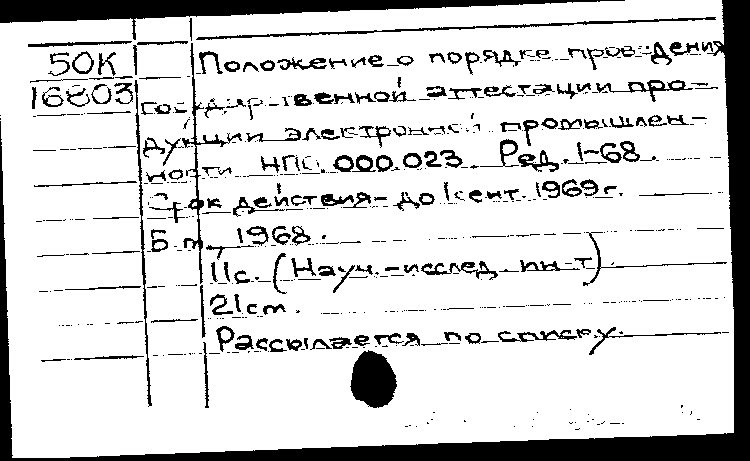 50К Положение о порядке проведения
16803 государственной аттестации про-
дукции электронной промышлен-
ности НПО.000.023. Ред. 1-68.
Срок действия - до 1 сент. 1969 г.
Б.м., 1968.
11с. (Науч.-исслед. ин-т).
21см.
Рассылается по списку.